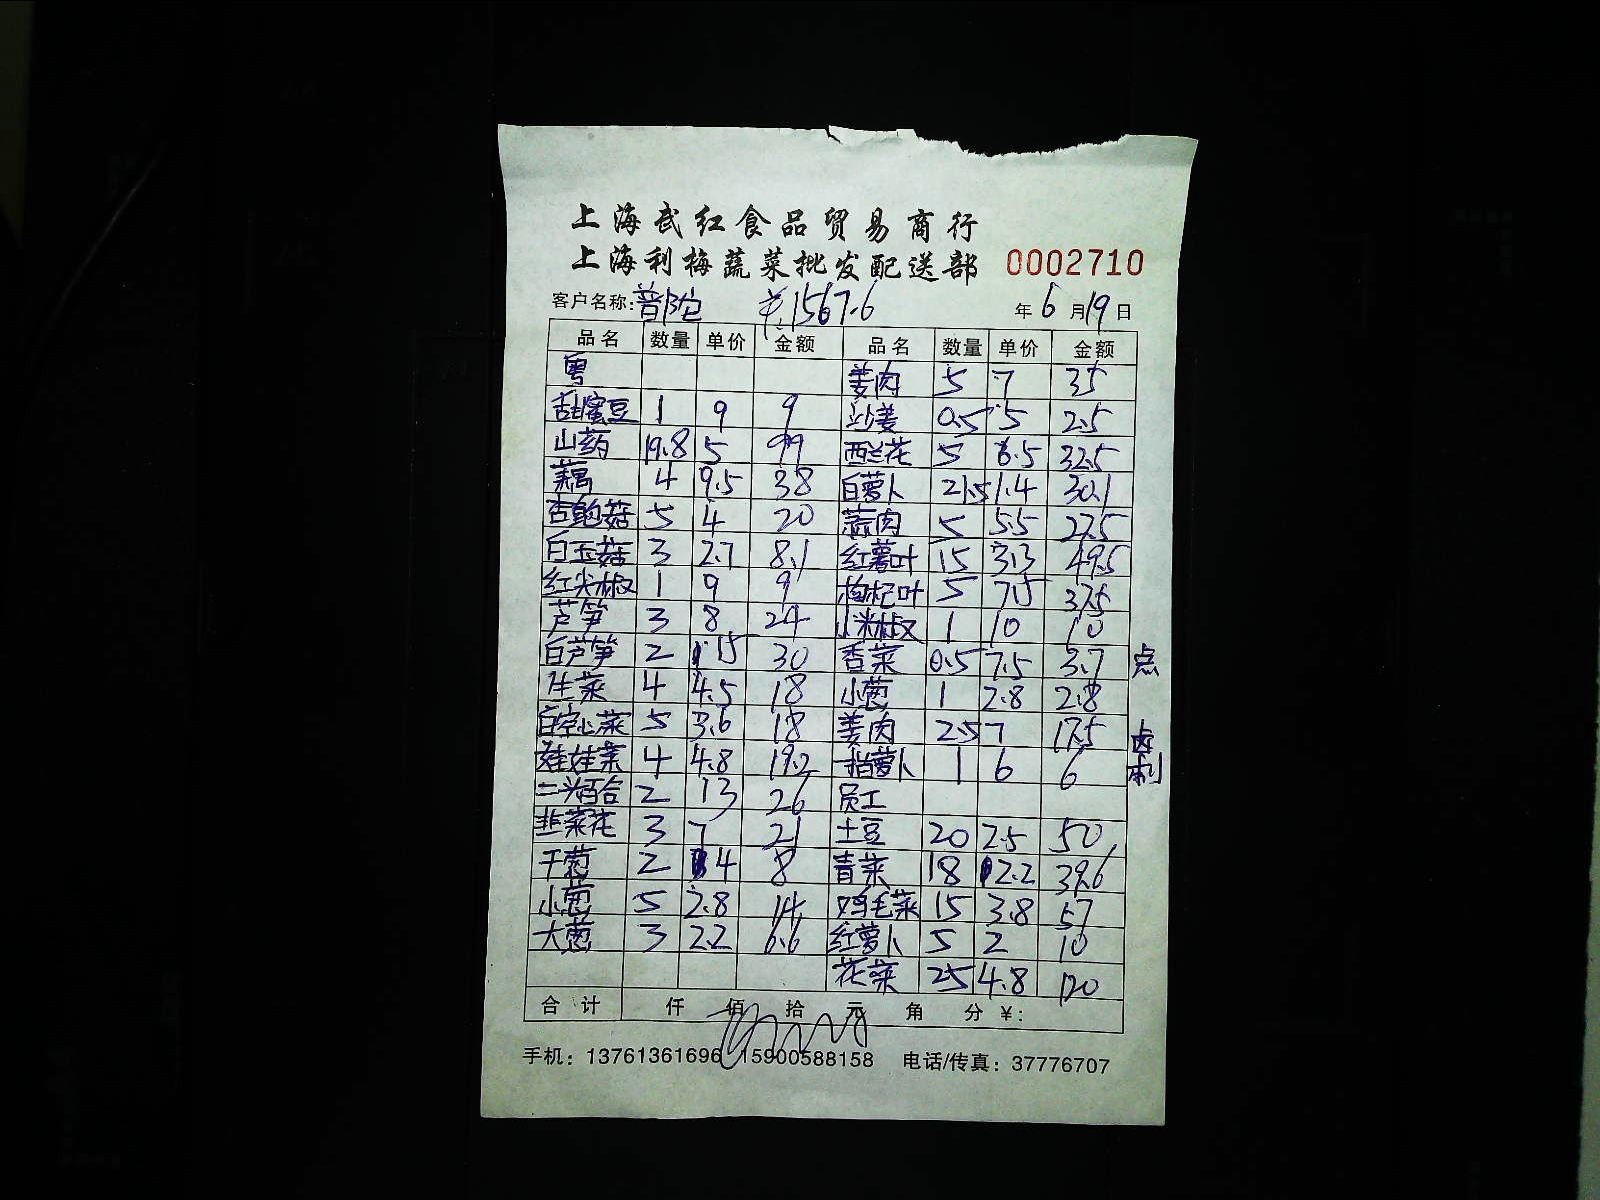 上海武红食品贸易商行
上海利梅蔬菜批发配送部 0002710
客户名称：普陀 ¥1567.6 年6月19日
品名 数量 单价 金额 品名 数量 单价 金额
粤 姜肉 5 7 35
甜蜜豆 1 9 9 沙姜 0.5 5 2.5
山药 19.8 5 99 西兰花 5 6.5 32.5
藕 4 9.5 38 白萝卜 21.5 1.4 30.1
杏鲍菇 5 4 20 蒜肉 5 5.5 27.5
白玉菇 3 2.7 8.1 红薯叶 15 3.3 49.5
红尖椒 1 9 9 枸杞叶 5 7.5 37.5
芦笋 3 8 24 小米椒 1 10 10
白芦笋 2 15 30 香菜 0.5 7.5 3.7 点
生菜 4 4.5 18 小葱 1 2.8 2.8
白空心菜 5 3.6 18 姜肉 2.5 7 17.5 卤
娃娃菜 4 4.8 19.2 指萝卜 1 6 6 利
二头百合 2 13 26 员工
韭菜花 3 7 21 土豆 20 2.5 50
干葱 2 4 8 青菜 18 2.2 39.6
小葱 5 2.8 14 鸡毛菜 15 3.8 57
大葱 3 2.2 6.6 红萝卜 5 2 10
花菜 25 4.8 120
合计 仟 佰 拾 元 角 分 ¥：
手机：13761361696 15900588158 电话/传真：37776707